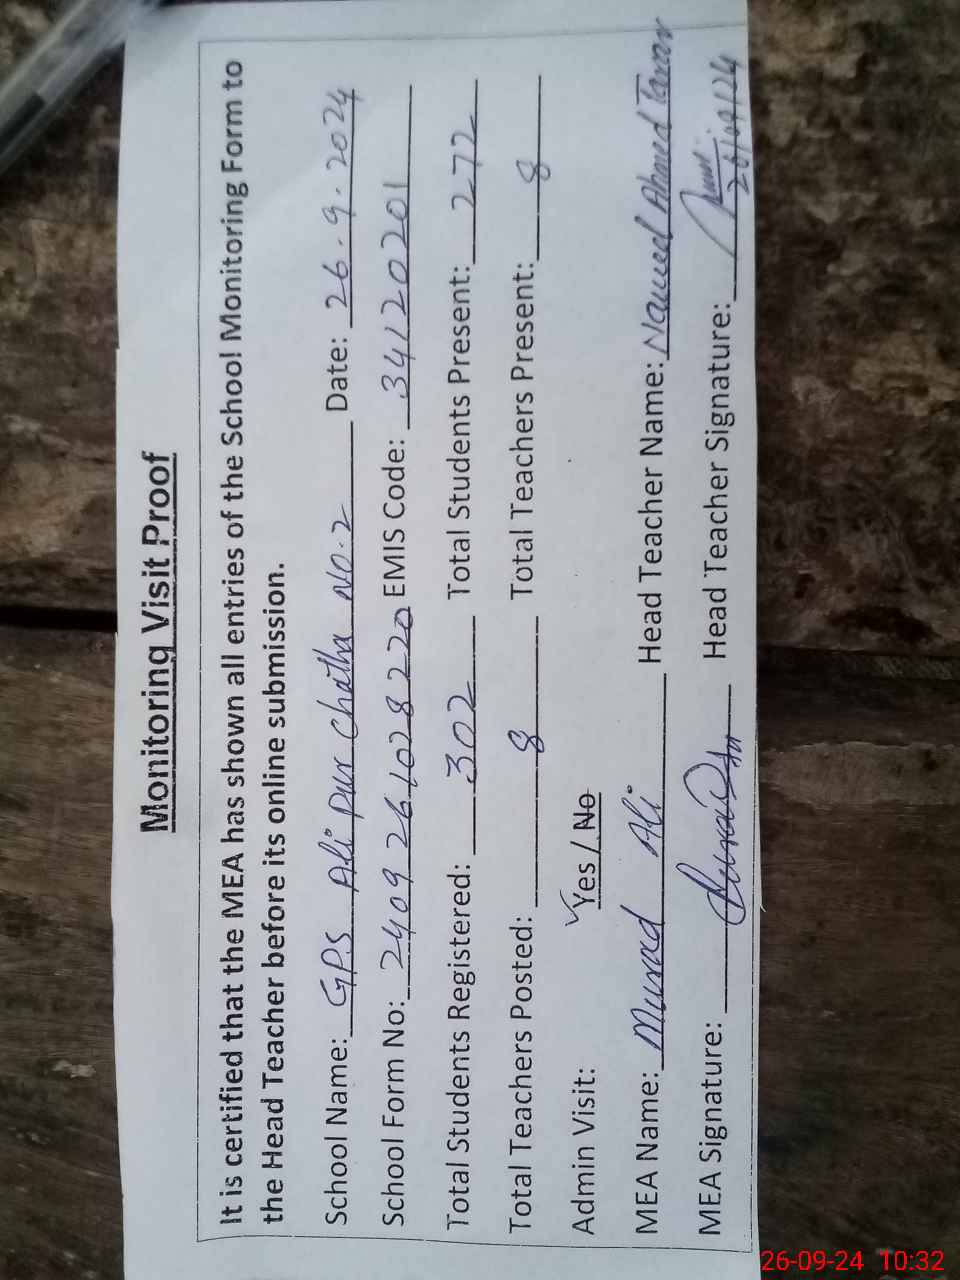 Monitoring Visit Proof
It is certified that the MEA has shown all entries of the School Monitoring Form to
the Head Teacher before its online submission.
School Name: GPS Ali Pur Chatha No.2 Date: 26-9-2024
School Form No: 2409261028220 EMIS Code: 34120201
Total Students Registered: 302 Total Students Present: 272
Total Teachers Posted: 8 Total Teachers Present: 8
Admin Visit: Yes / No
MEA Name: Murad Ali Head Teacher Name: Ahmed Tarar
MEA Signature: Head Teacher Signature:
26/09/24
26-09-24 10:32